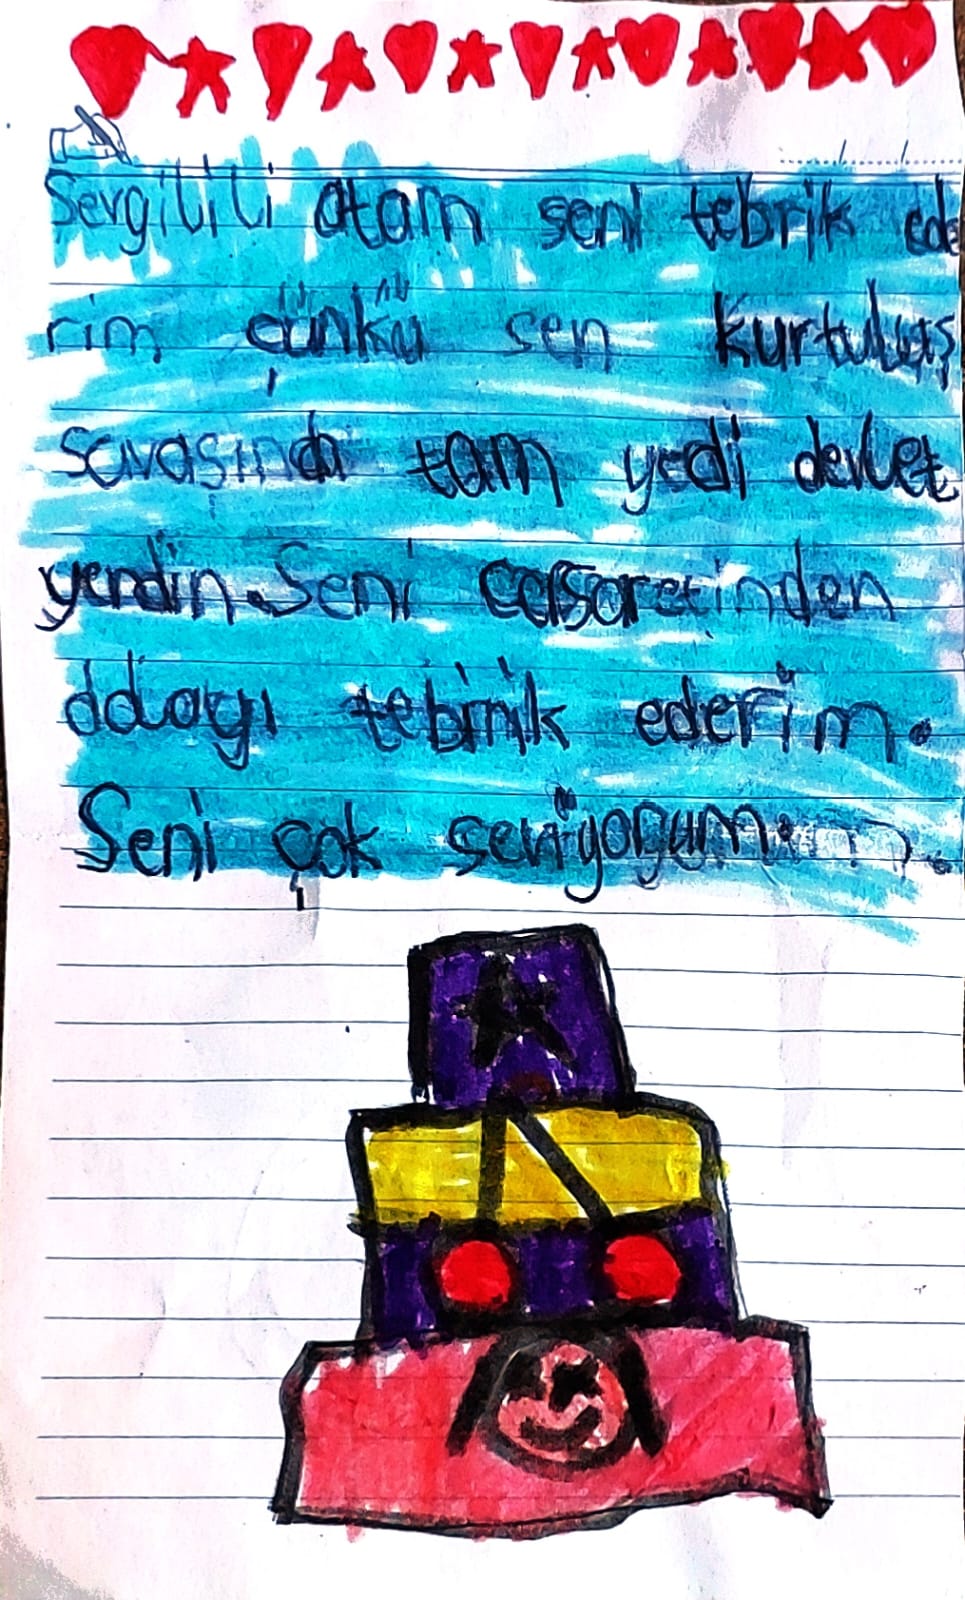 Sevgilili atam seni tebrik ede
rim çünkü sen kurtuluş
savaşında tam yedi devlet
yendin. Seni cesaretinden
ddlagı tebrik ederim.
Seni çok seviyorum.